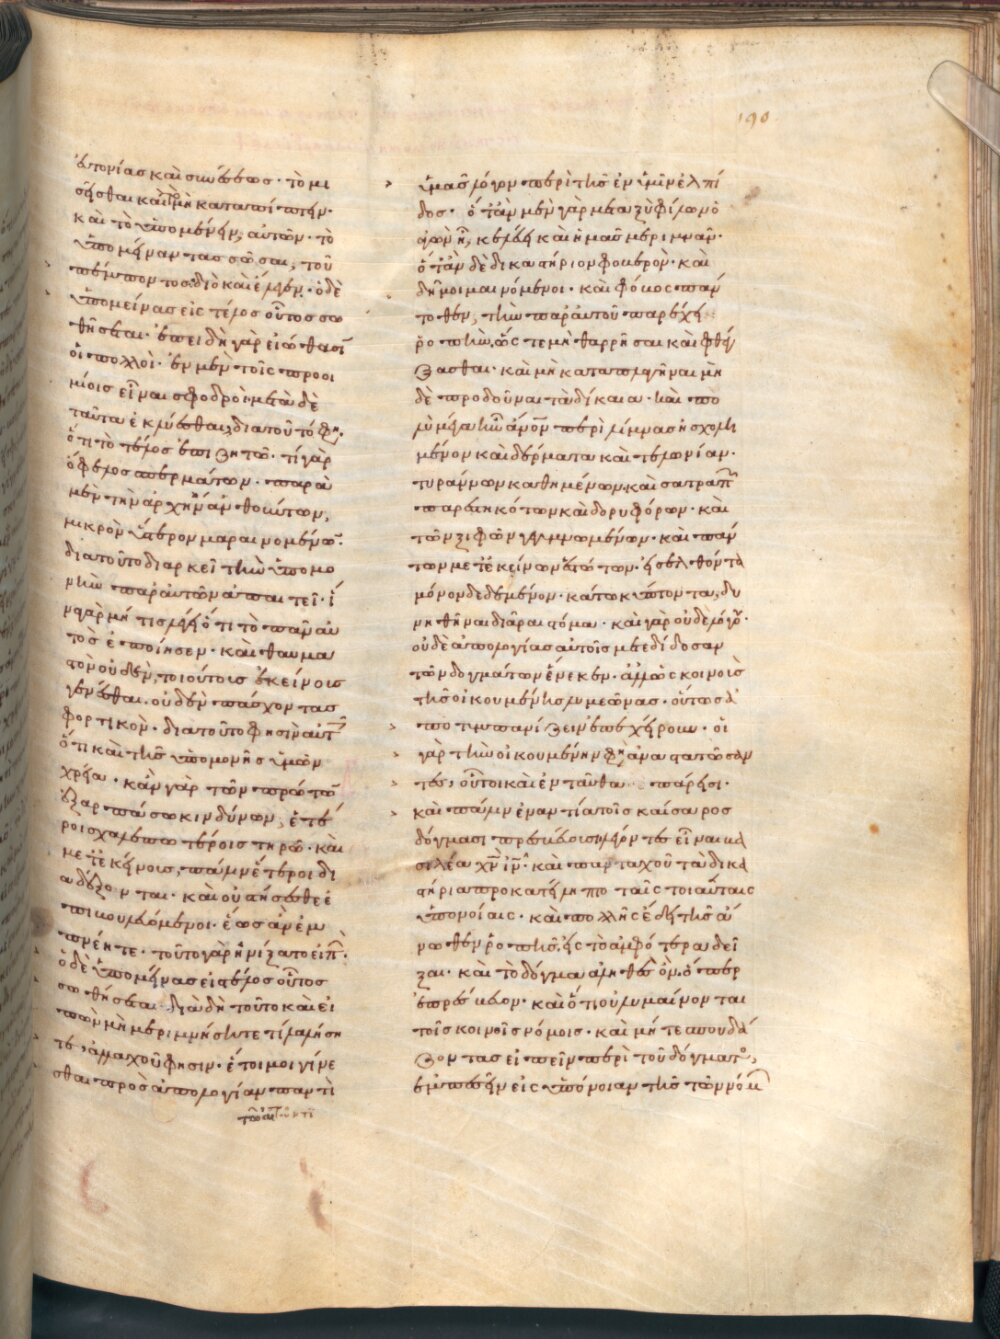 190
εὐτονίας καὶ συνέσεως· τὸ μι
σεῖσθαι καὶ τὸ μὴ καταπίπτειν·
καὶ τὸ ὑπομένειν, αὐτῶν· τὸ
ὑπομείναντας σῶσαι, τοῦ
πέμποντος διὸ καὶ ἔλεγεν· ὁ δὲ
ὑπομείνας εἰς τέλος οὗτος σω
θήσεται· ἐπειδὴ γὰρ εἰώθασιν
οἱ πολλοὶ· ἐν μὲν τοῖς προοι
μίοις εἶναι σφοδροὶ μετὰ δὲ
ταῦτα ἐκλύεσθαι, διὰ τοῦτό φη·
ὅτι τὸ τέλος ἐπιζητῶ· τί γὰρ
ὄφελος σπερμάτων· παρὰ
μὲν τὴν ἀρχὴν ἀνθούντων,
μικρὸν ὕστερον μαραινομένων·
διὰ τοῦτο διαρκεῖ τὴν ὑπομο
νὴν παρ' αὐτῶν ἀπαιτεῖ· ἵ
να γὰρ μή τις λέγῃ ὅτι τὸ πᾶν αὐ
τὸς ἐποίησεν· καὶ θαυμα
στὸν οὐδὲν, τοιούτοις ἐκείνοις
γενέσθαι· οὐδὲν πάσχοντας
φορτικὸν· διὰ τοῦτο φησὶν αὐτοῖς
ὅτι καὶ τῆς ὑπομονῆς ὑμῶν
χρεία· κἂν γὰρ τῶν πρώτων
ἐξαρπάσω κινδύνων, ἑτέ
ροις χαλεπωτέροις τηρῶ· καὶ
μετ' ἐκείνοις, πάλιν ἕτεροι δι
αδέξονται· καὶ οὐ στήσεσθε ἐ
πιβουλευόμενοι· ἕως ἂν ἐμ
πνέητε· τοῦτο γὰρ ᾐνίξατο εἰπὼν·
ὁ δὲ ὑπομείνας εἰς τέλος οὗτος
σωθήσεται· διὰ δὴ τοῦτο καὶ εἰ
πὼν μὴ μεριμνήσητε τί λαλήση
τε, ἀλλαχοῦ φησιν· ἕτοιμοι γίνε
σθαι πρὸς ἀπολογίαν παντὶ
τῷ αἰτοῦντι
ὑμᾶς λόγον περὶ τῆς ἐν ὑμῖν ἐλπί
δος· ὅταν μὲν γὰρ μεταξὺ φίλων ὁ
ἀγὼν ᾖ, κελεύει καὶ ἡμᾶς μεριμνᾶν·
ὅταν δὲ δικαστήριον φοβερὸν· καὶ
δῆμοι μαινόμενοι· καὶ φόβος παν
τόθεν, τὴν παρ' αὐτοῦ παρέχει
ῥοπὴν, ὥστε μὴ θαρρῆσαι καὶ φθέγ
ξασθαι· καὶ μὴ καταπλαγῆναι μη
δὲ προδοῦναι τὰ δίκαια· καὶ πο
λὺ μέγα ἦν ἄνον περὶ λίμνας ἠσχολη
μένον καὶ δέρματα καὶ τελωνίαν·
τυράννων καθημένων, καὶ σατραπῶν
παρεστηκότων καὶ δορυφόρων· καὶ
τῶν ξιφῶν γεγυμνωμένων· καὶ πάν
των μετ' ἐκείνων ἑστώτων· εἰσελθόντα
μόνον δεδεμένον· κάτω κύπτοντα, δυ
νηθῆναι διᾶραι στόμα· καὶ γὰρ οὐδὲ λόγου·
οὐδὲ ἀπολογίας αὐτοῖς μετεδίδοσαν
τῶν δογμάτων ἕνεκεν· ἀλλ' ὡς κοινοὺς
τῆς οἰκουμένης λυμεῶνας· οὕτως ἀ
ποτυμπανίζειν ἐπεχείρουν· οἱ
γὰρ τὴν οἰκουμένην φη ἀναστατώσαν
τες, οὗτοι καὶ ἐνταῦθα πάρεισι·
καὶ πάλιν ἐναντία τοῖς καίσαρος
δόγμασι πρεσβεύουσι λέγοντες εἶναι βα
σιλέα χν ιν· καὶ πανταχοῦ τὰ δικα
στήρια προκατείληπτο ταῖς τοιαύταις
ὑπονοίαις· καὶ πολλῆς ἔδει τῆς ἄ
νωθεν ῥοπῆς, εἰς τὸ ἀμφότερα δεῖ
ξαι· καὶ τὸ δόγμα ἀληθὲς ὂν, ὅπερ
ἐπρέσβευον· καὶ ὅτι οὐ λυμαίνονται
τοῖς κοινοῖς νόμοις· καὶ μήτε σπουδά
ζοντας εἰπεῖν περὶ τοῦ δόγματος,
ἐμπεσεῖν εἰς ὑπόνοιαν τῆς τῶν νόμων